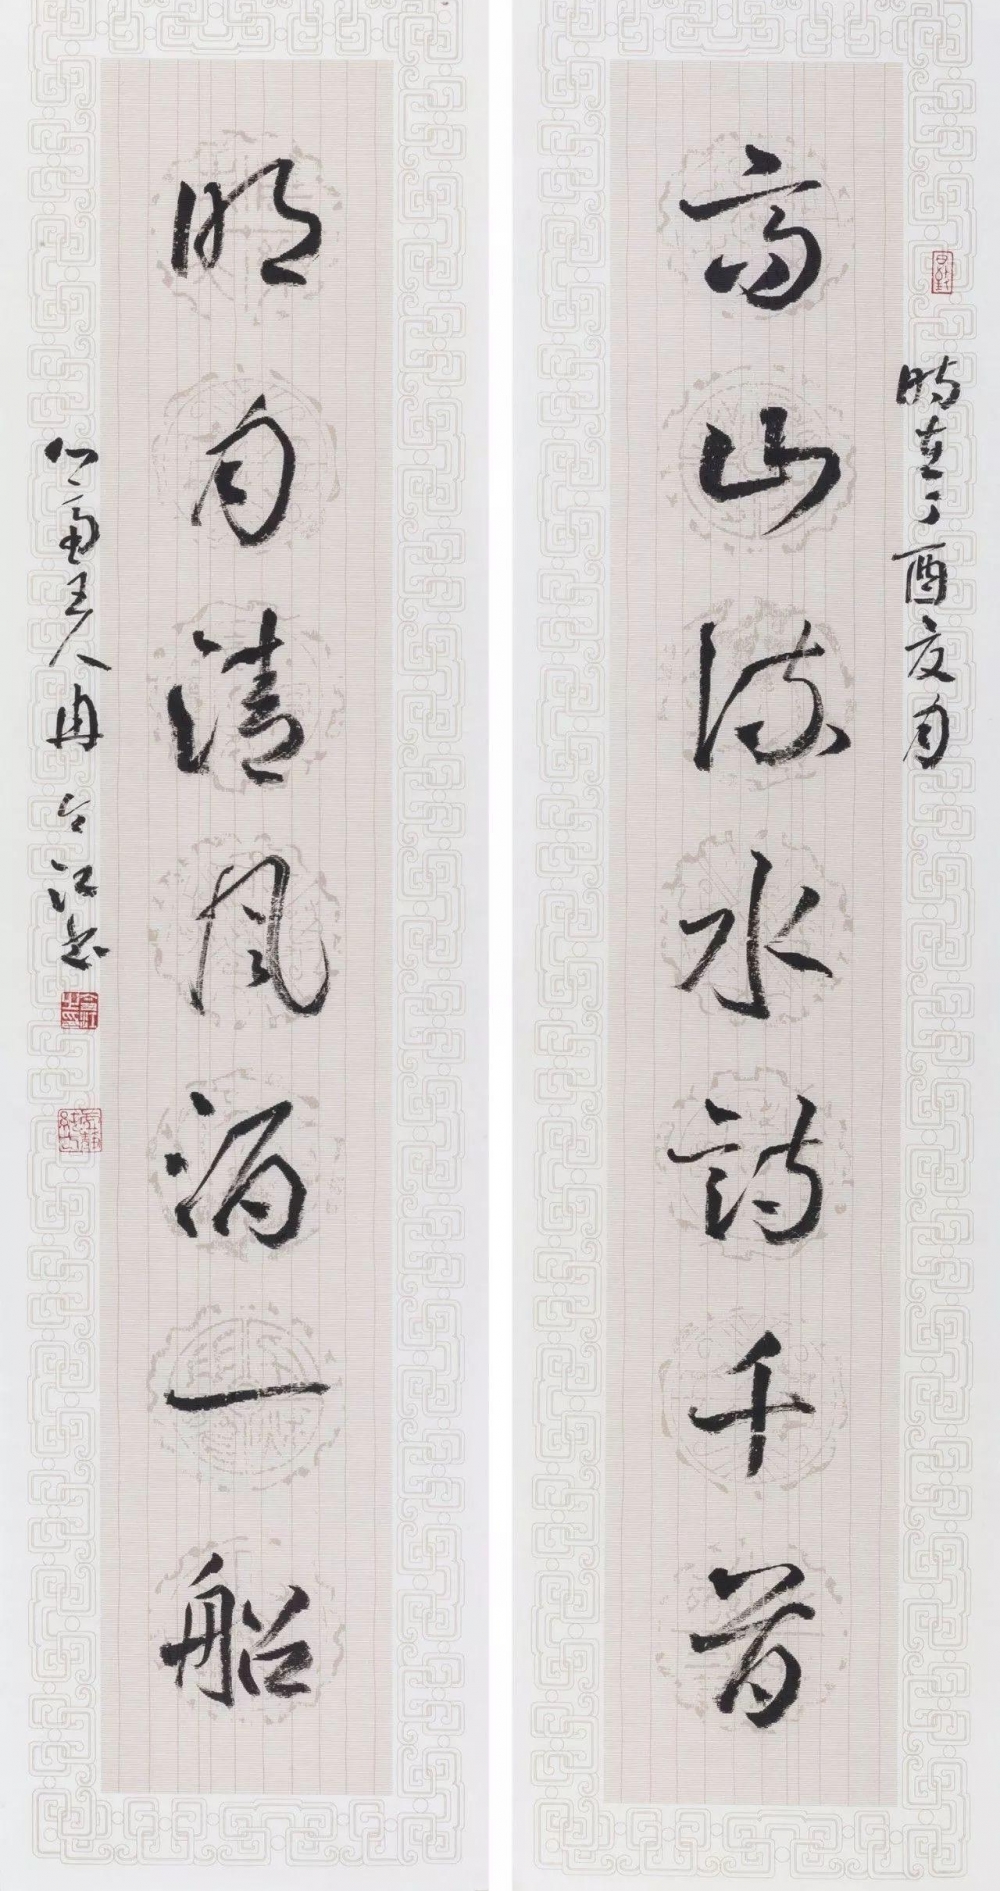 时在丁酉夏月
高山流水诗千首
明月清风酒一船
仁斋主人冉令江书